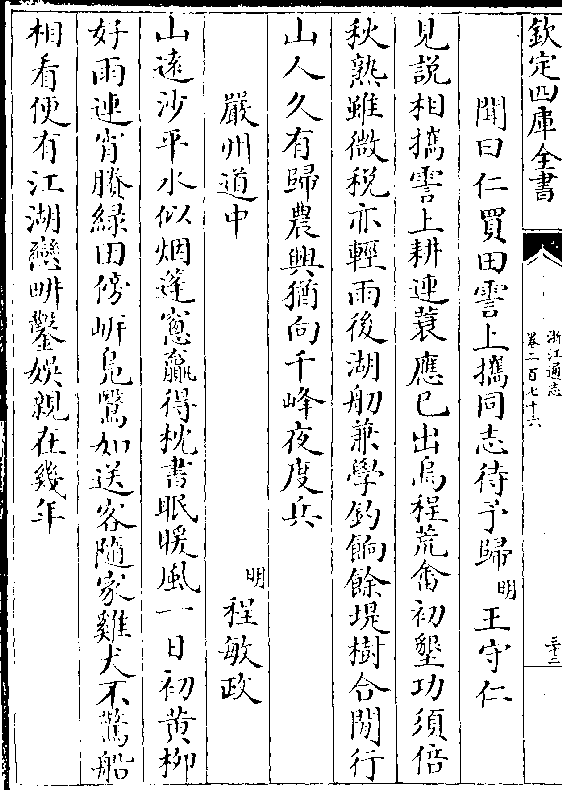 欽定四庫全書
浙江通志
卷二百七十六
三十三
聞曰仁買田霅上攜同志待予歸 明 王守仁
見說相攜霅上耕連蓑應已出烏程荒畬初墾功須倍
秋熟雖微稅亦輕雨後湖舠兼學釣餉餘堤樹合閒行
山人久有歸農興猶向千峰夜度兵
嚴州道中
明 程敏政
山遶沙平水似烟蓬窻贏得枕書眠暖風一日初黄柳
好雨連宵賸綠田傍㟁鳬鷖如送客隨家雞犬不驚船
相看便有江湖戀畊鑿娱親在幾年